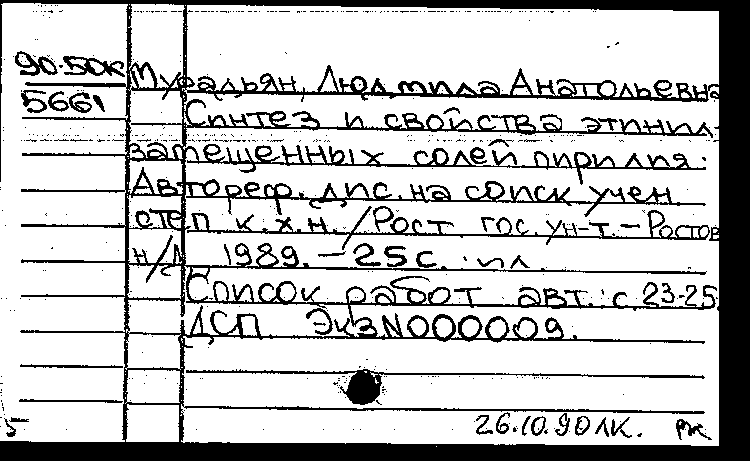 90-50к Мурадьян, Людмила Анатольевна
5661 Синтез и свойства этинил-
замещенных солей пирилия.
Автореф. дис. на соиск учен
степ к.х.н. / Рост гос. ун-т. - Ростов
н/Д 1989. - 25 с. ил.
Список работ авт.: с. 23-25.
ДСП Экз N000009.
26.10.90 ЛК. РЖ
5